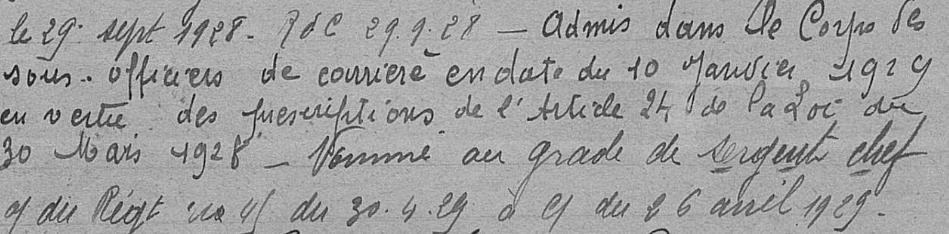 le 29 sept 1928. RdC 29.9.28 — Admis dans le Corps des
sous-officiers de carriere en date du 10 Janvier 1929
en vertu des prescriptions de l'Article 24 de la Loi du
30 Mars 1928 — Nommé au grade de sergent chef
du Régt no du 30.4.29 à du 26 avril 1929.